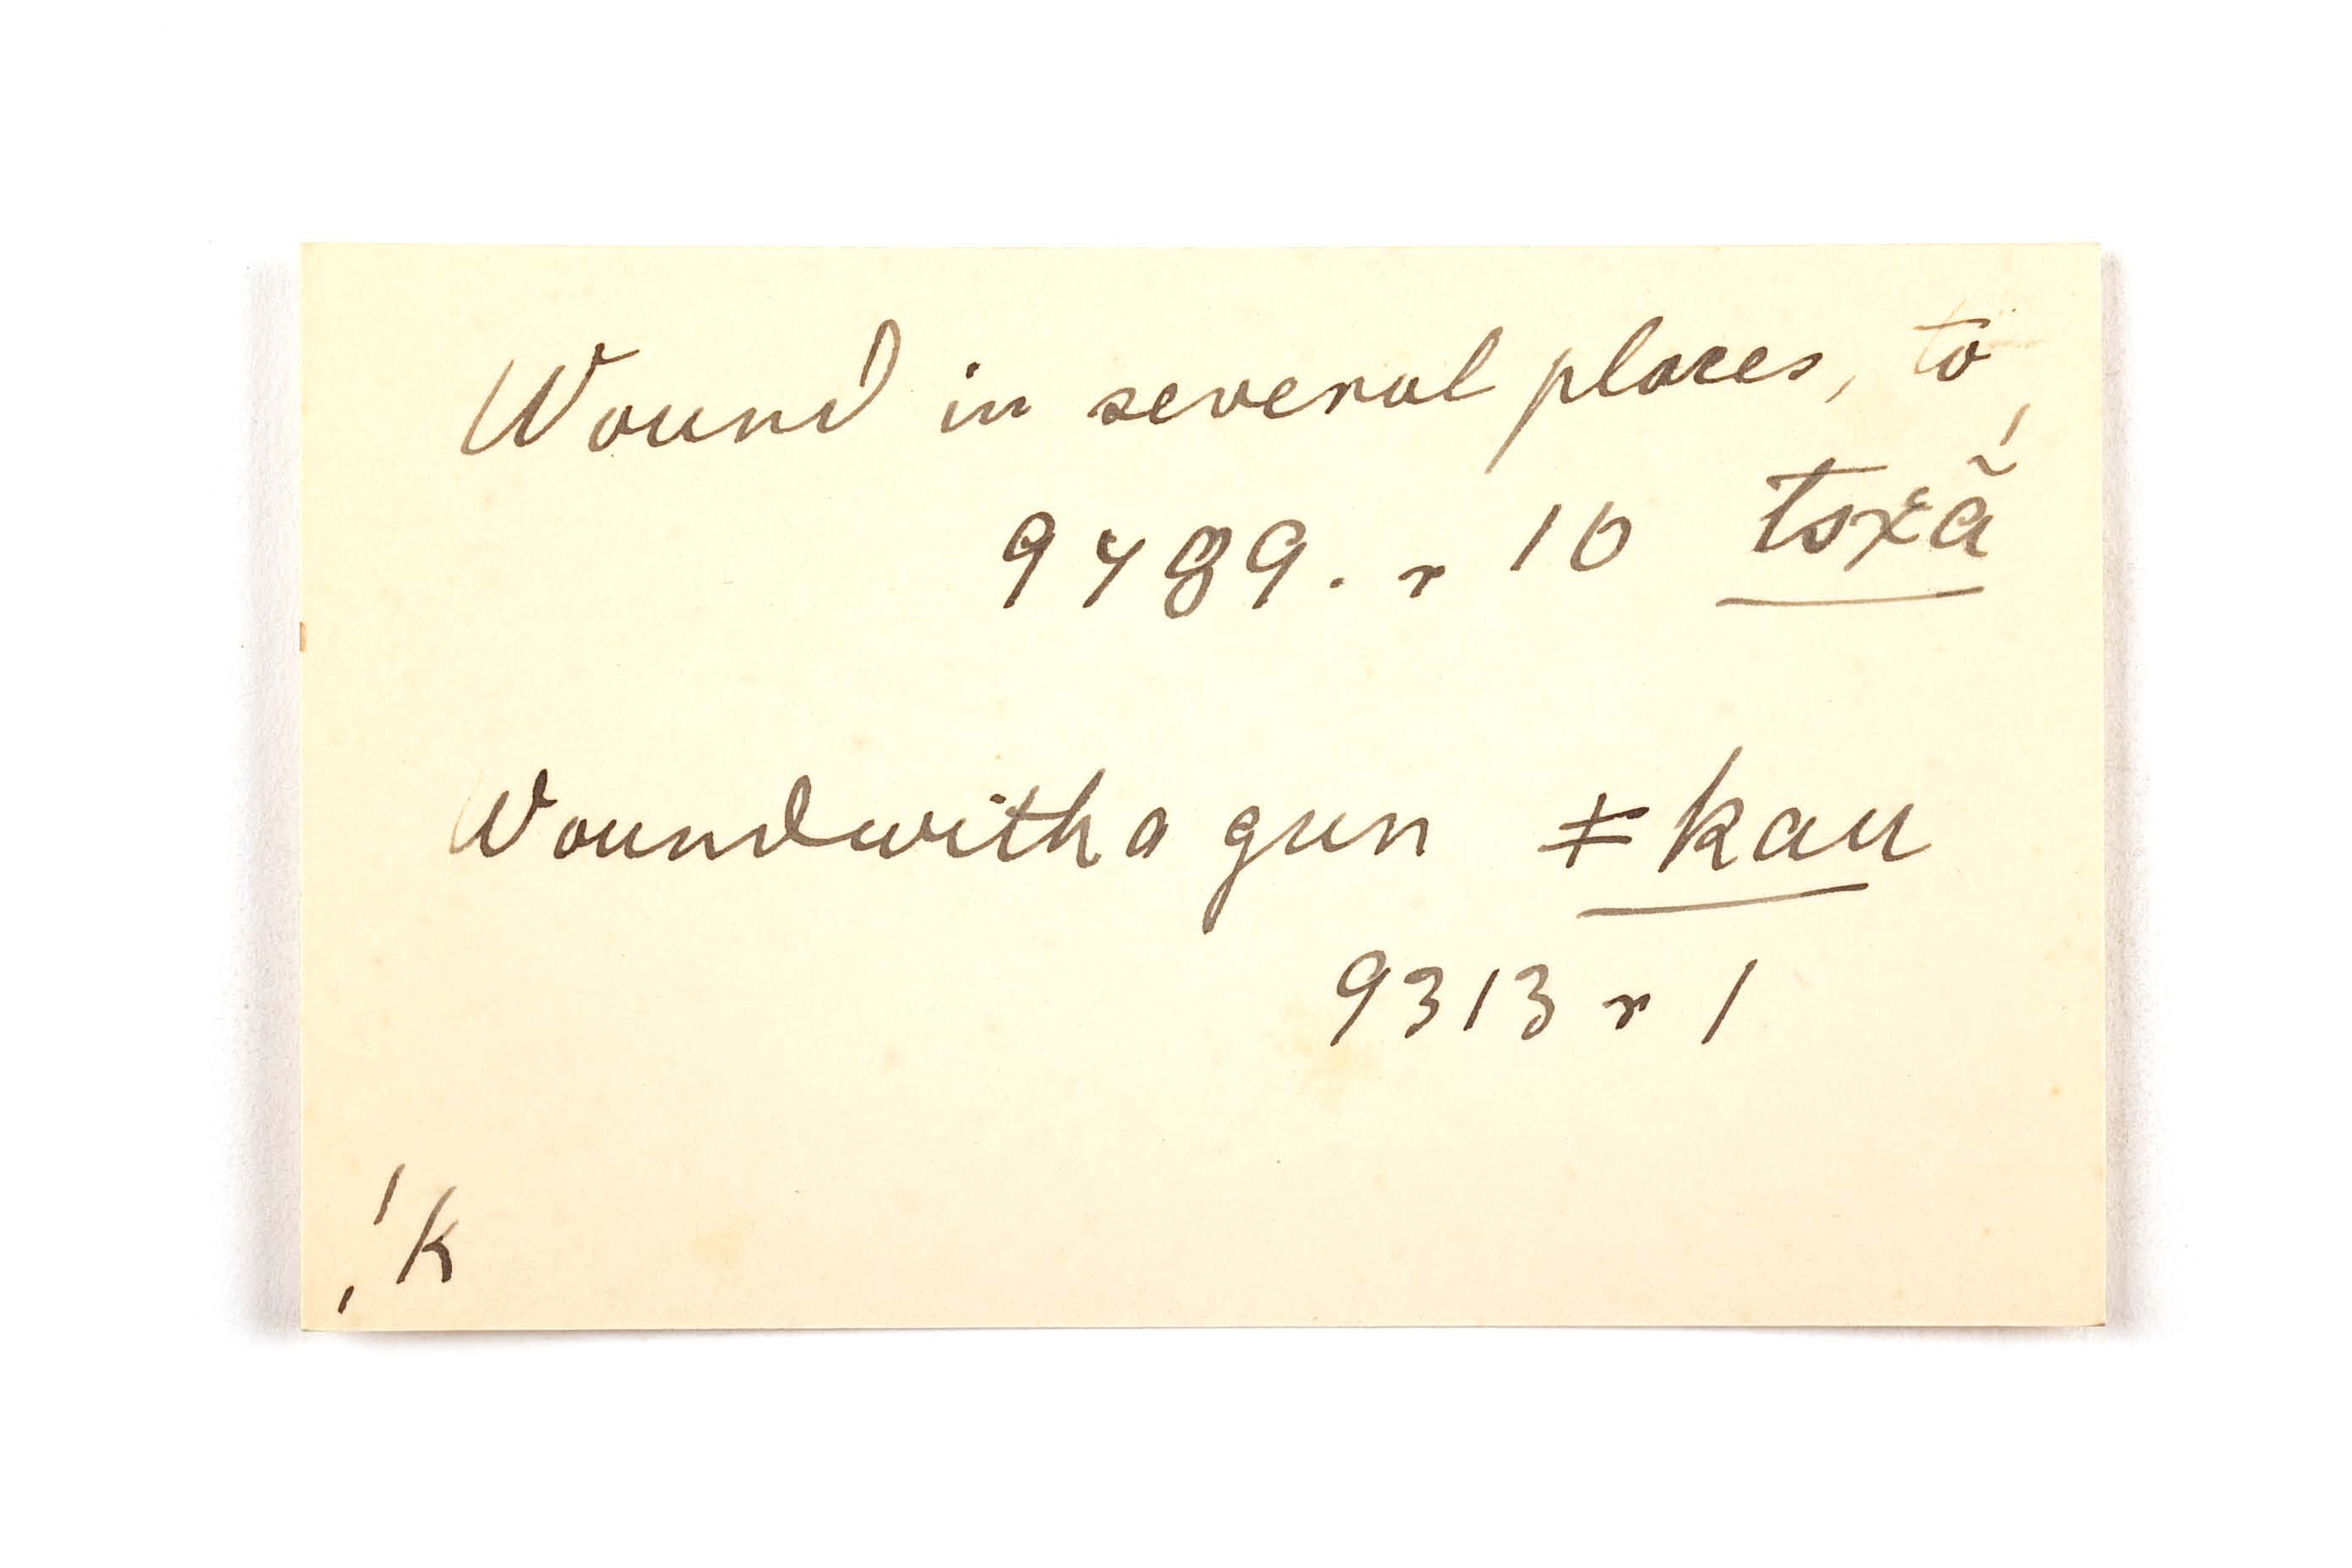 Wound in several places, to,
9789. r 10 toxã
Wound with a gun ǂkau
9313 r 1
!k